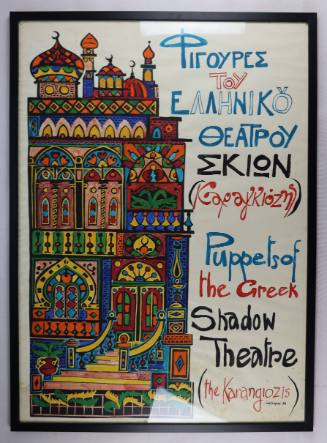 Φιγουρες
του
Ελληνικὸ
Θεατρου
Σκιων
(Καραγκιοζη)
Puppets of
the Greek
Shadow
Theatre
(the Karangiozis)